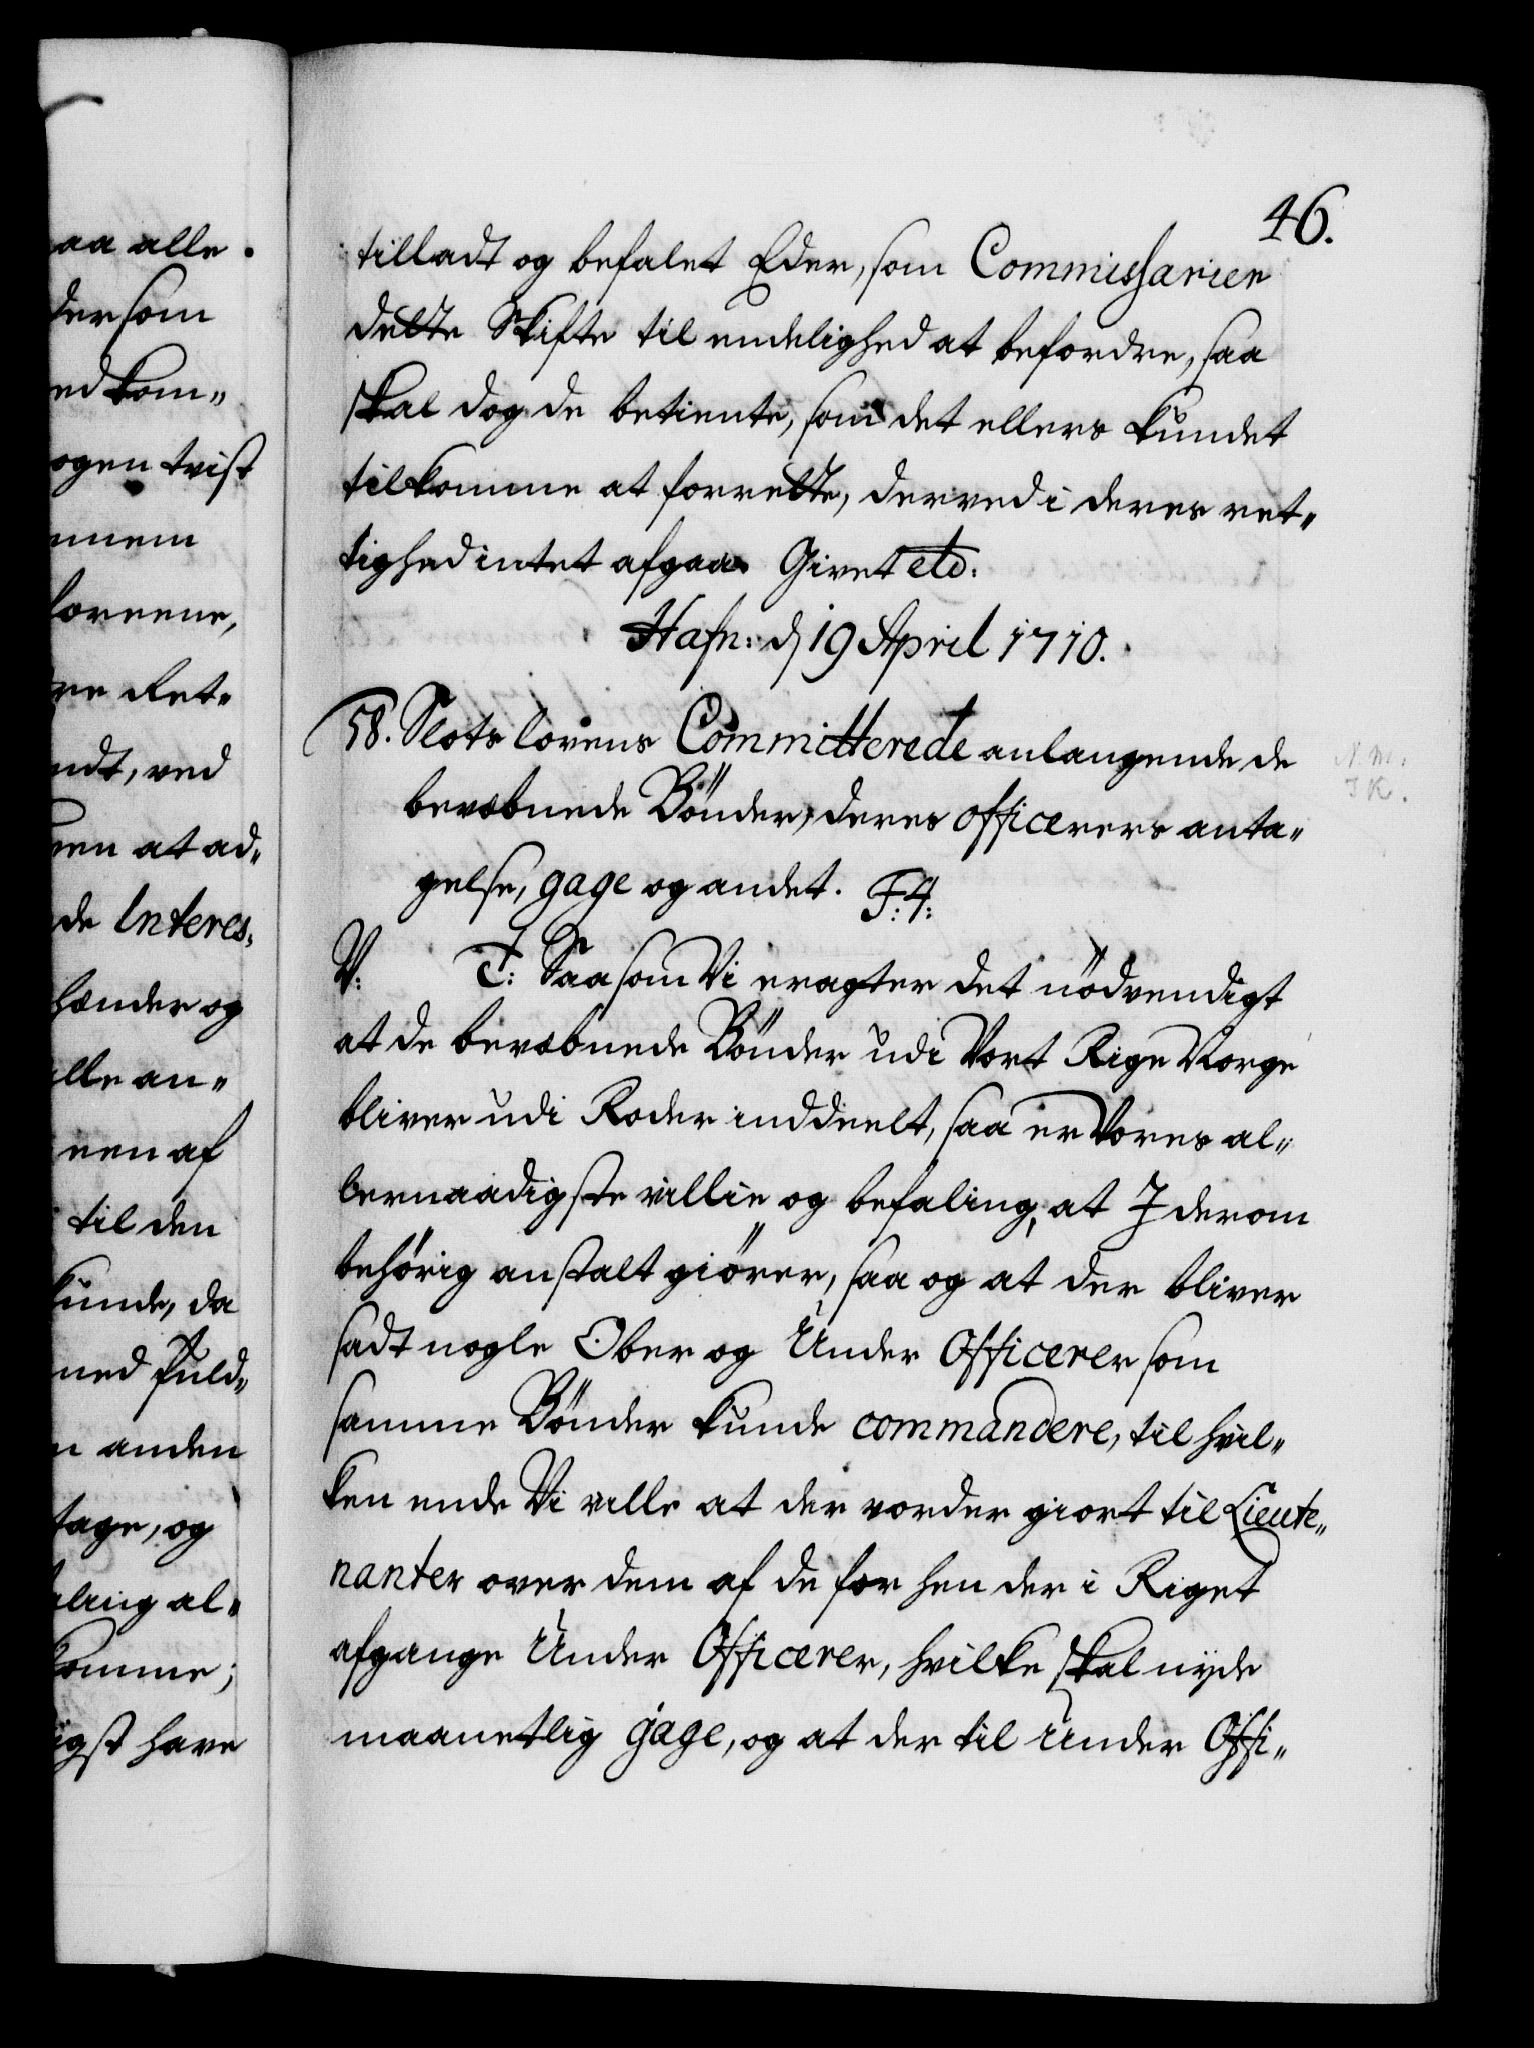 46.
tilladt og befalet Eder, som Commissarier
dette Skifte til endelighed at befordre, saa
skal dog de betiente, som det ellers kundet
tilkomme at forrette, derved i deres ret„
tighed intet afgaa. Givet etc:
Hafn: d 19 April 1710.
58. Slotslovens Committerede anlangende de
bevæbnede Bönder, deres officerers anta„
gelse, gage og andet. F. 4:
V: T: Saasom Vi eragter det nödvendigt
at de bevæbnede Bönder udi Vort Rige Norge
bliver udi Roder inddeelt, saa er Vores al„
lernaadigste villie og befaling, at J derom
behörig anstalt giörer, saa og at der bliver
sadt nogle Ober og Under Officerer som
samme Bönder kunde commandere, til hvil„
ken ende Vi ville at der vorder giort til Lieute„
nanter over dem af de for hen der i Riget
afgange Under Officerer, hvilke skal nyde
maanetlig gage, og at der til Under Offi„
N. M.
J K.
aa alle
dersom
ed kom„
ogen tvist
nnem
lovene,
re Ret„
ndt, ved
en at ad„
de Interes„
hænder og
lle an„
een af
til den
kunde, da
med fuld„
n anden
tage, og
aling al„
komme;
igst have